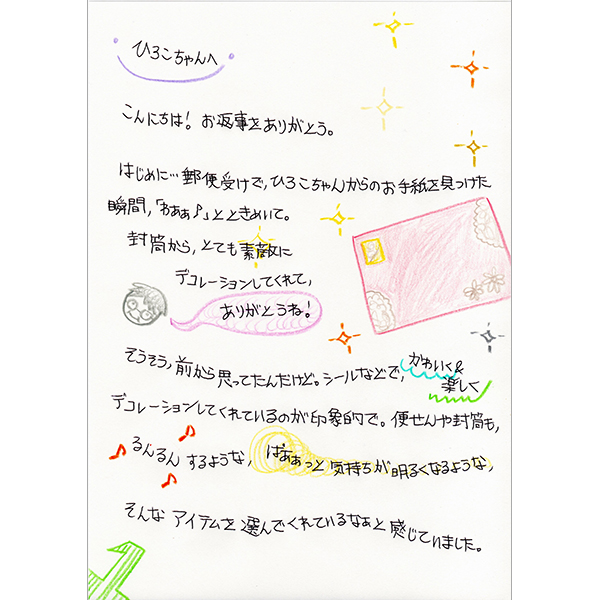 ひろこちゃんへ
こんにちは！お返事をありがとう。
はじめに…郵便受けで、ひろこちゃんからのお手紙を見つけた
瞬間、「わぁぁ♪」とときめいて。
封筒から、とても素敵に
デコレーションしてくれて、
ありがとうね！
そうそう、前から思ってたんだけど。シールなどで、かわいく&
楽しく
デコレーションしてくれているのが印象的で。便せんや封筒も、
るんるんするような、ぱぁぁっと気持ちが明るくなるような、
そんなアイテムを選んでくれているなぁと感じていました。